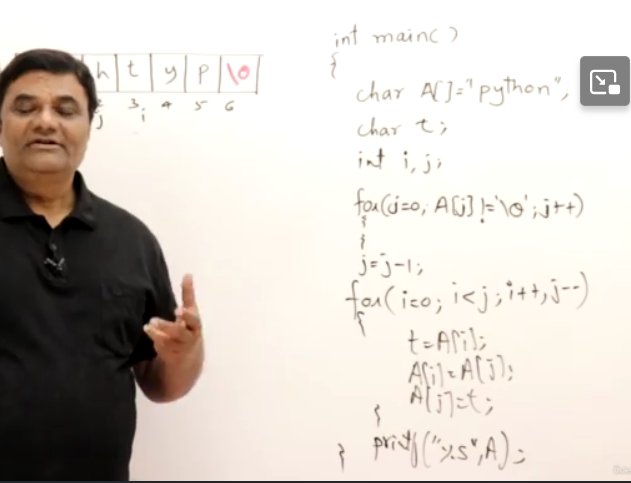 h t y p \0
j 3 i 4 5 6
int main()
{
char A[]="python";
char t;
int i, j;
for(j=0; A[j]!='\0'; j++)
{
}
j=j-1;
for(i=0; i<j; i++, j--)
{
t=A[i];
A[i]=A[j];
A[j]=t;
}
printf("%s",A);
}